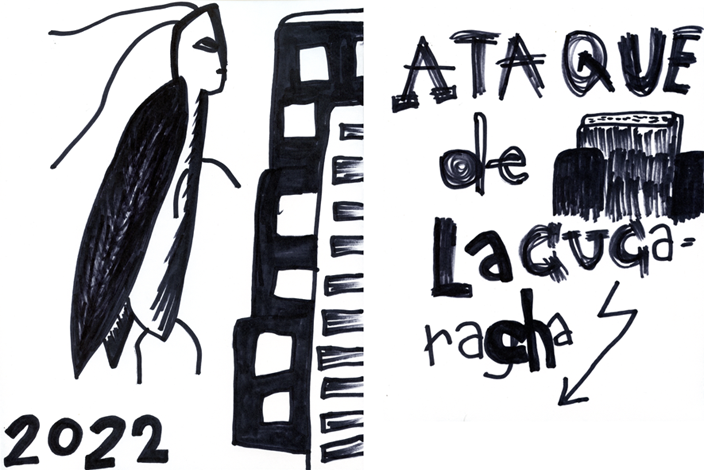 2022
ATAQUE
de
LaCUGa-
ragcha